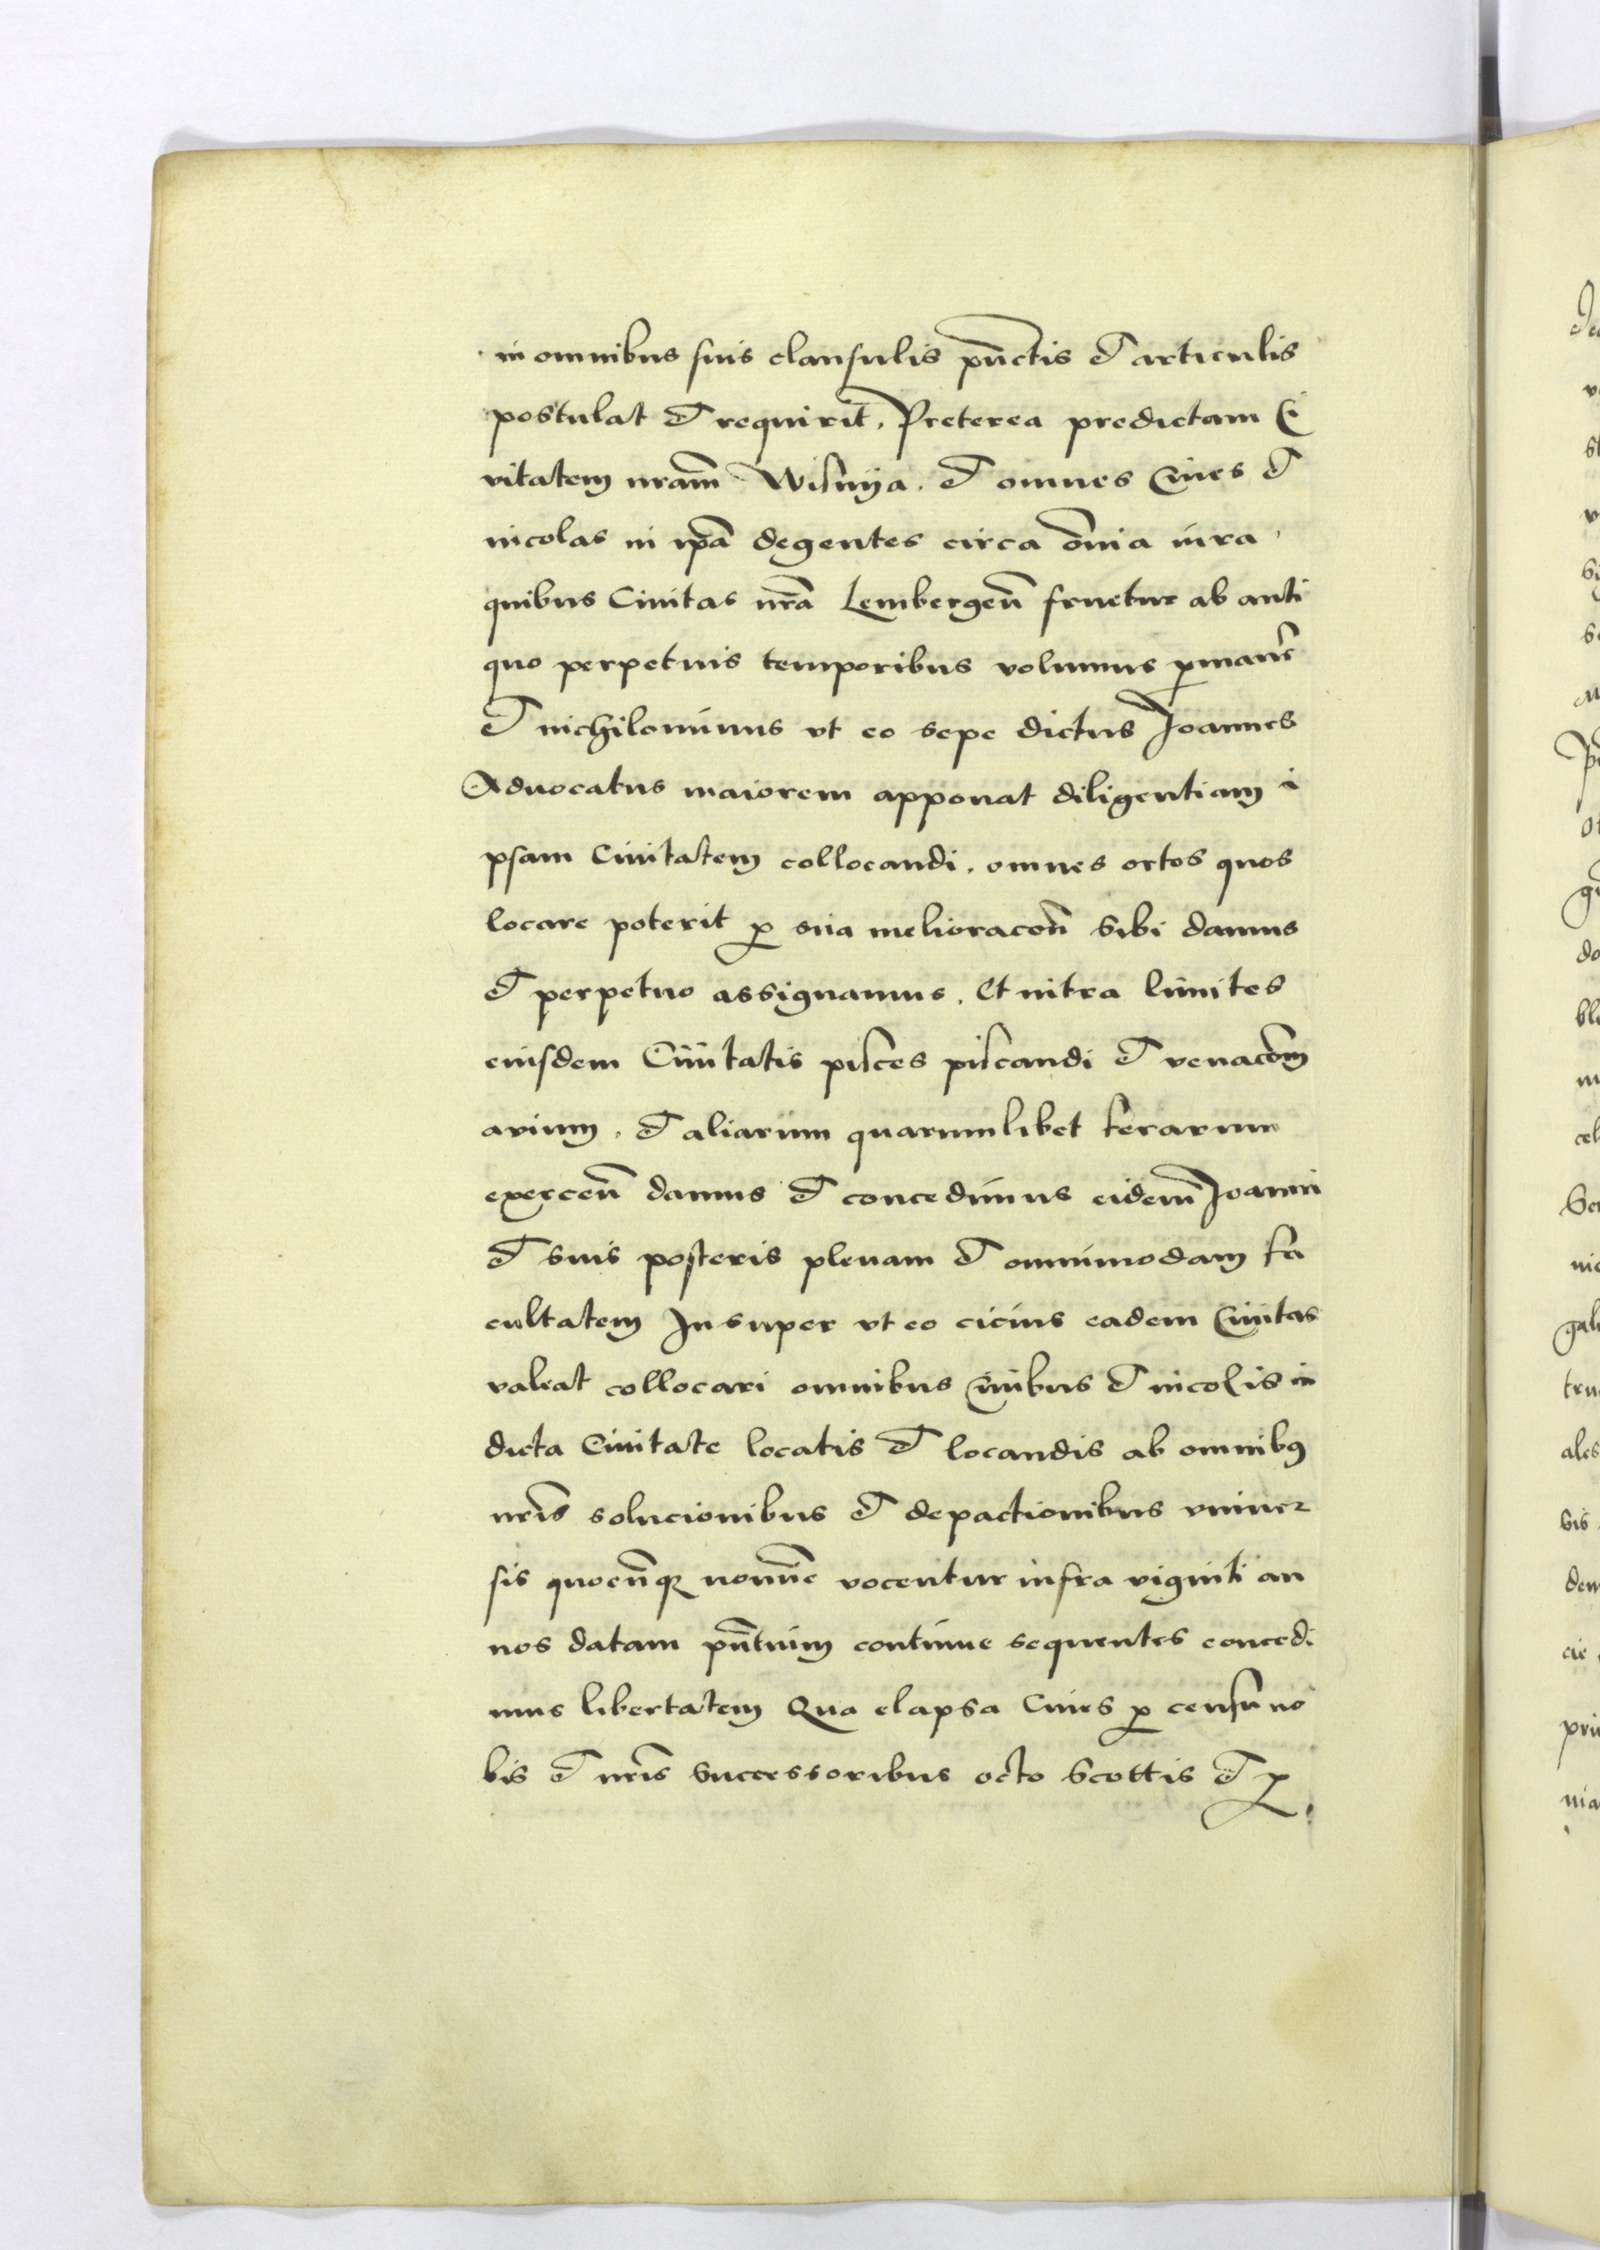 in omnibus suis clausulis pūctis et articulis
postulat et requirit. Preterea predictam Ci
vitatem nrām Wisnija. et omnes Cives et
incolas in ipā degentes circa om̄ia iura
quibus Civitas nrā Lembergeñ fruetur ab anti
quo perpetuis temporibus volumus pmaner̄
et nichilominus vt eo sepe dictus Joannes
Aduocatus maiorem apponat diligentiam i
psam Civitatem collocandi. omnes ortos quos
locare poterit p sua melioracōn sibi damus
et perpetuo assignamus. Et intra limites
eiusdem Civitatis pisces piscandi et venacōm
avium. et aliarum quarumlibet ferarum
exerceñ damus et concedimus eidem Joanni
et suis posteris plenam et omnimodam fa
cultatem Insuper vt eo cicius eadem Civitas
valeat collocari omnibus Civibus et incolis in
dicta Civitate locatis et locandis ab omnibꝰ
nrīs solucionibus et depactionibus vniuer
sis quocūqꝫ nomīe vocentur infra viginti an
nos datam pn̄tium continue sequentes concedi
mus libertatem Qua elapsa Cives p censu no
bis et nrīs successoribus octo Scottis et p